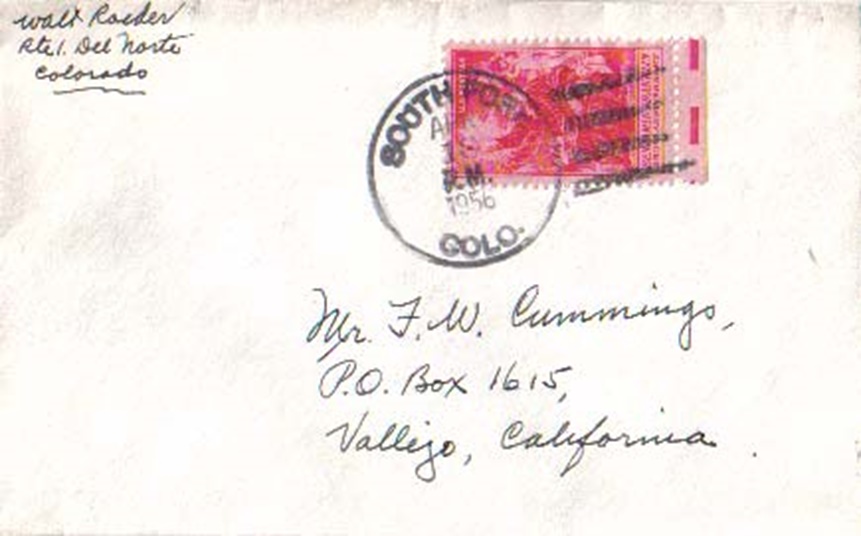 Walt Roeder
Rte 1. Del Norte
Colorado
SOUTH FORK
A.M.
1956
COLO.
Mr. F. W. Cummings,
P.O. Box 1615,
Vallejo, California